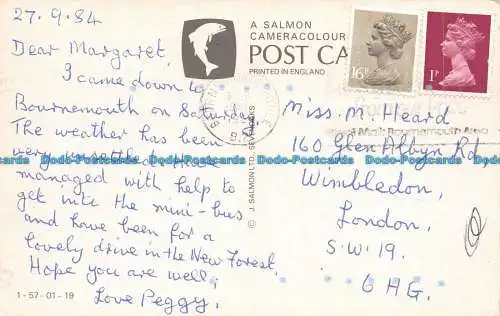 27.9.84
Dear Margaret,
I came down to
Bournemouth on Saturday.
The weather has been
very unsettled. Have
managed with help to
get into the mini-bus
and have been for a
lovely drive in the New Forest.
Hope you are well,
Love Peggy.
1-57-01-19
A SALMON
CAMERACOLOUR
POST CA
PRINTED IN ENGLAND
© J. SALMON LTD. SEVENOAKS
16P
1P
Miss. M. Heard
160 Glen Albyn Rd
Wimbledon,
London.
S.W.19.
6HG.
Postcards Postcards Postcards Postcards